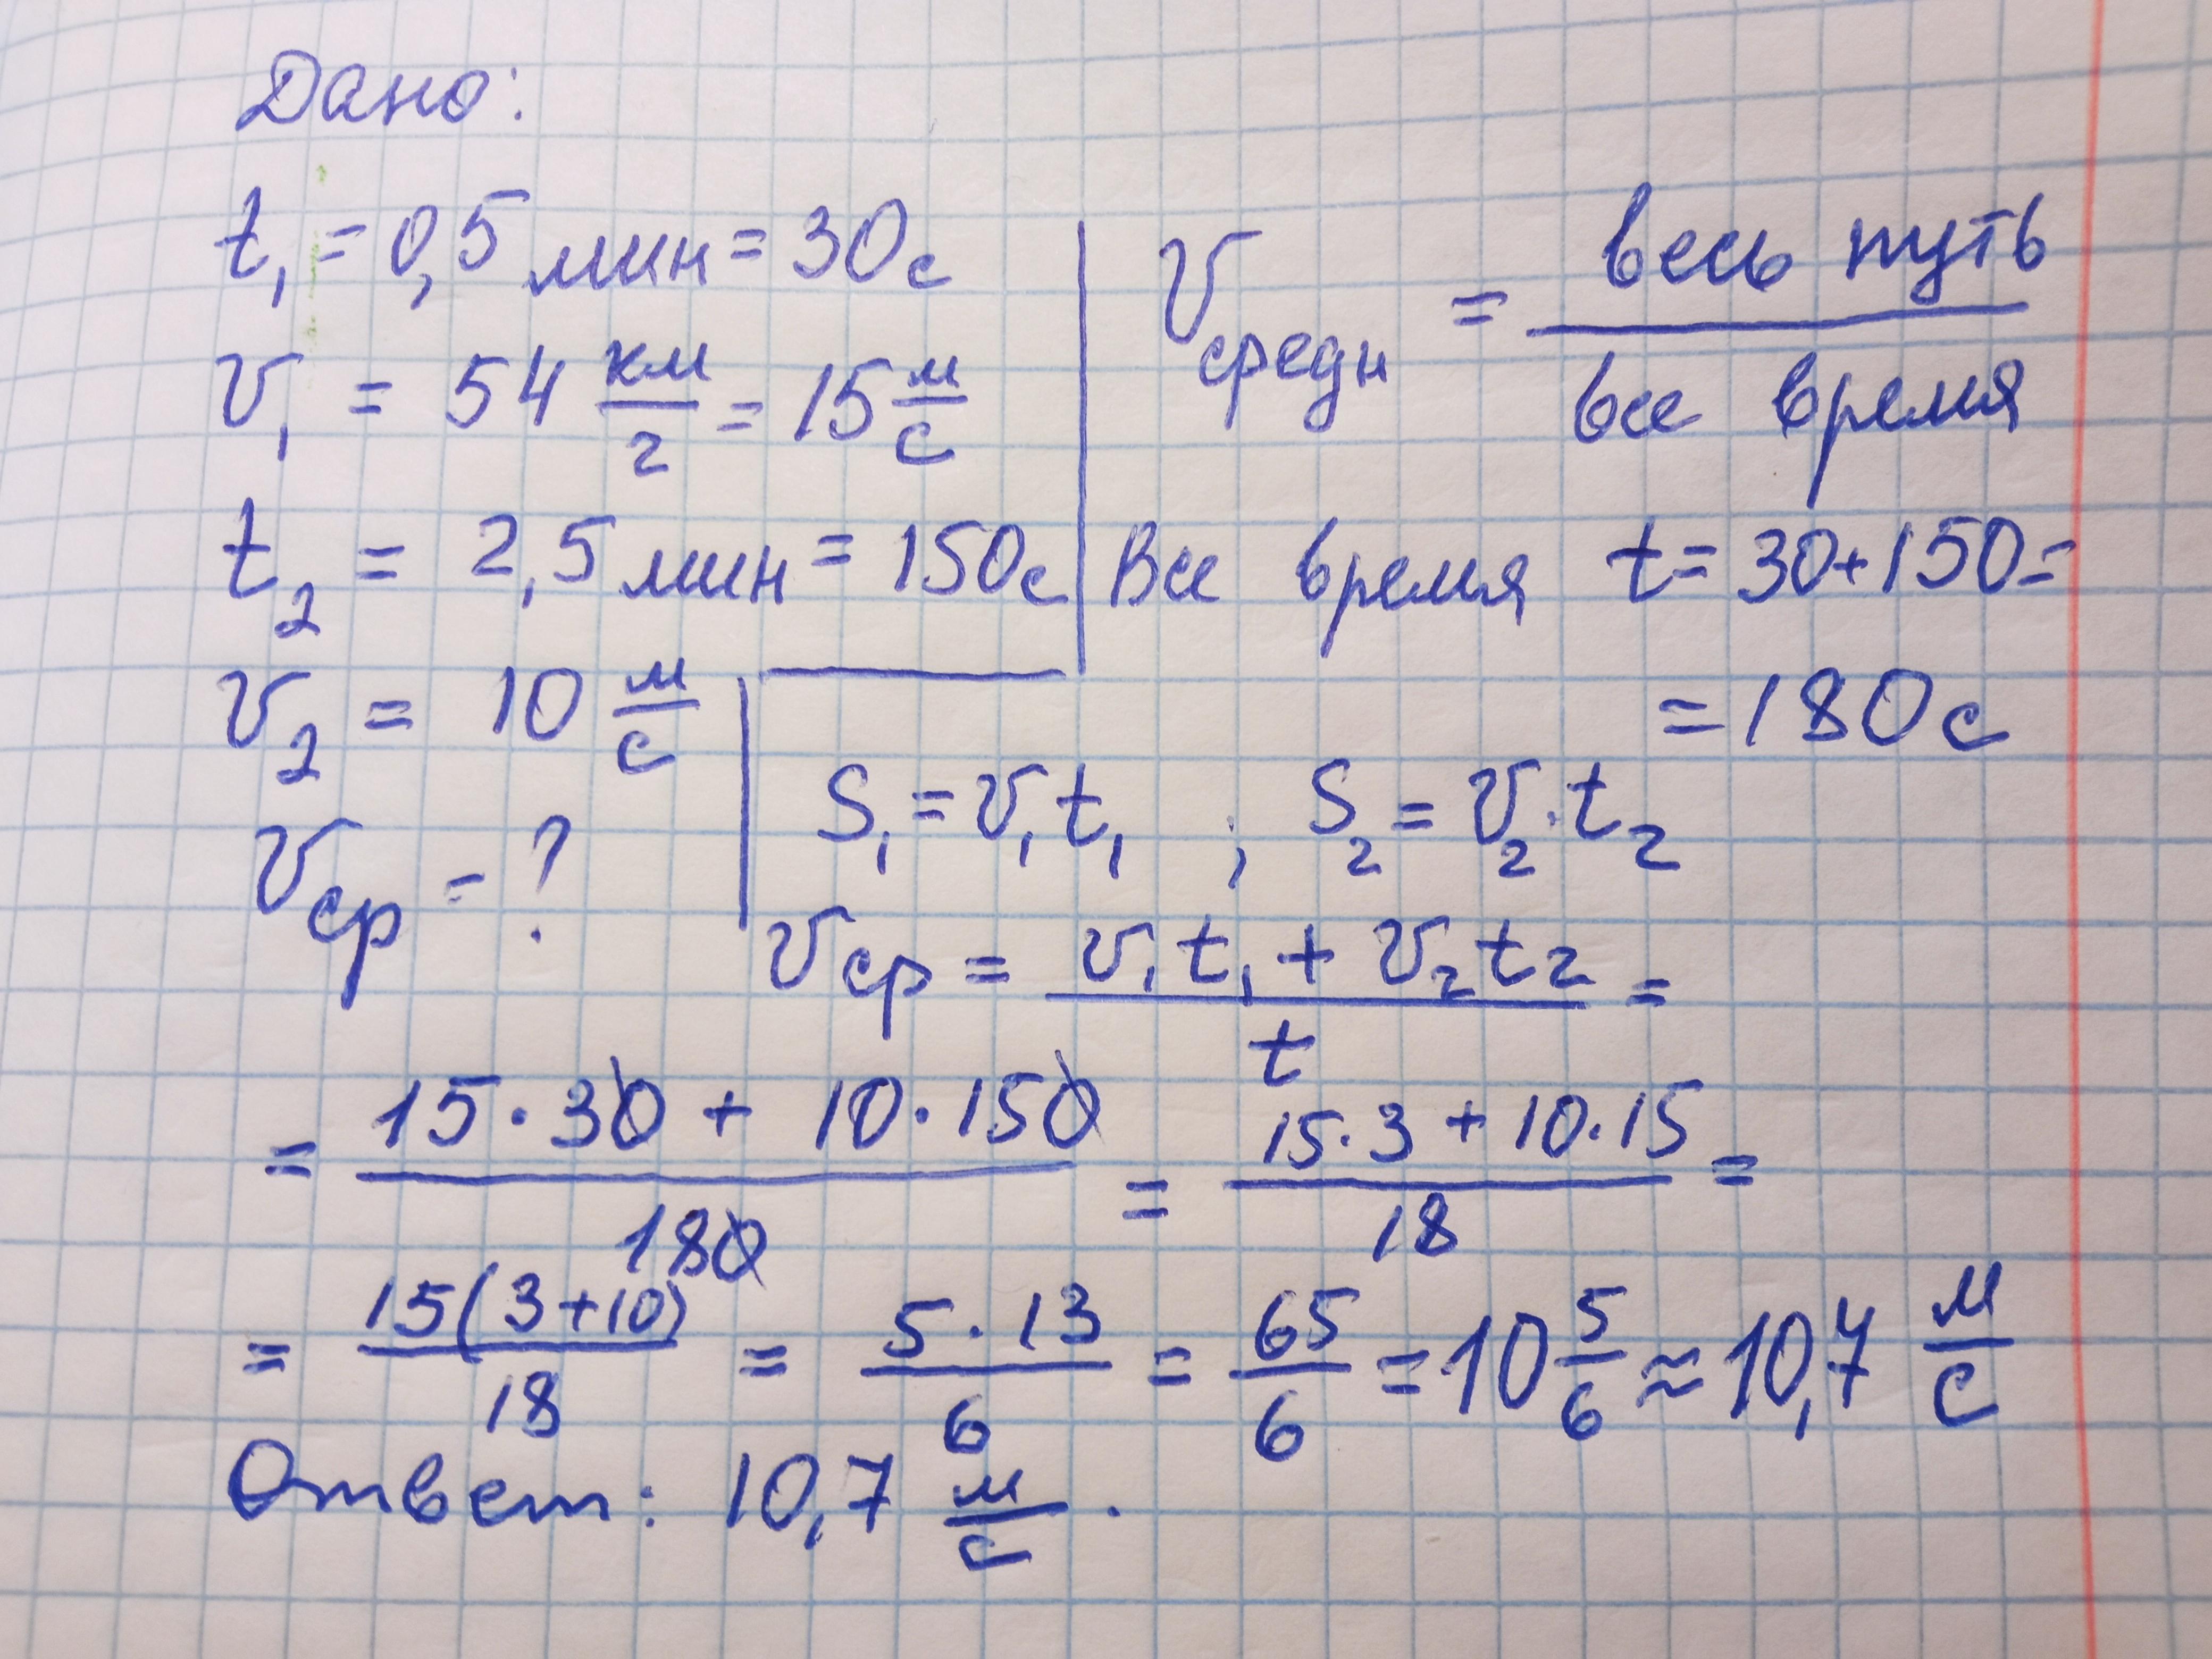 Дано:
t₁ = 0,5 мин = 30с
v₁ = 54 км/г = 15 м/с
t₂ = 2,5 мин = 150с
v₂ = 10 м/с
vср - ?
vсредн = весь путь / все время
Все время t = 30+150=
=180с
S₁ = v₁t₁ ; S₂ = v₂·t₂
vср = (v₁t₁ + v₂t₂) / t =
= (15·30 + 10·150) / 180 = (15·3 + 10·15) / 18 =
= 15(3+10) / 18 = 5·13 / 6 = 65/6 = 10 5/6 ≈ 10,7 м/с
Ответ: 10,7 м/с.